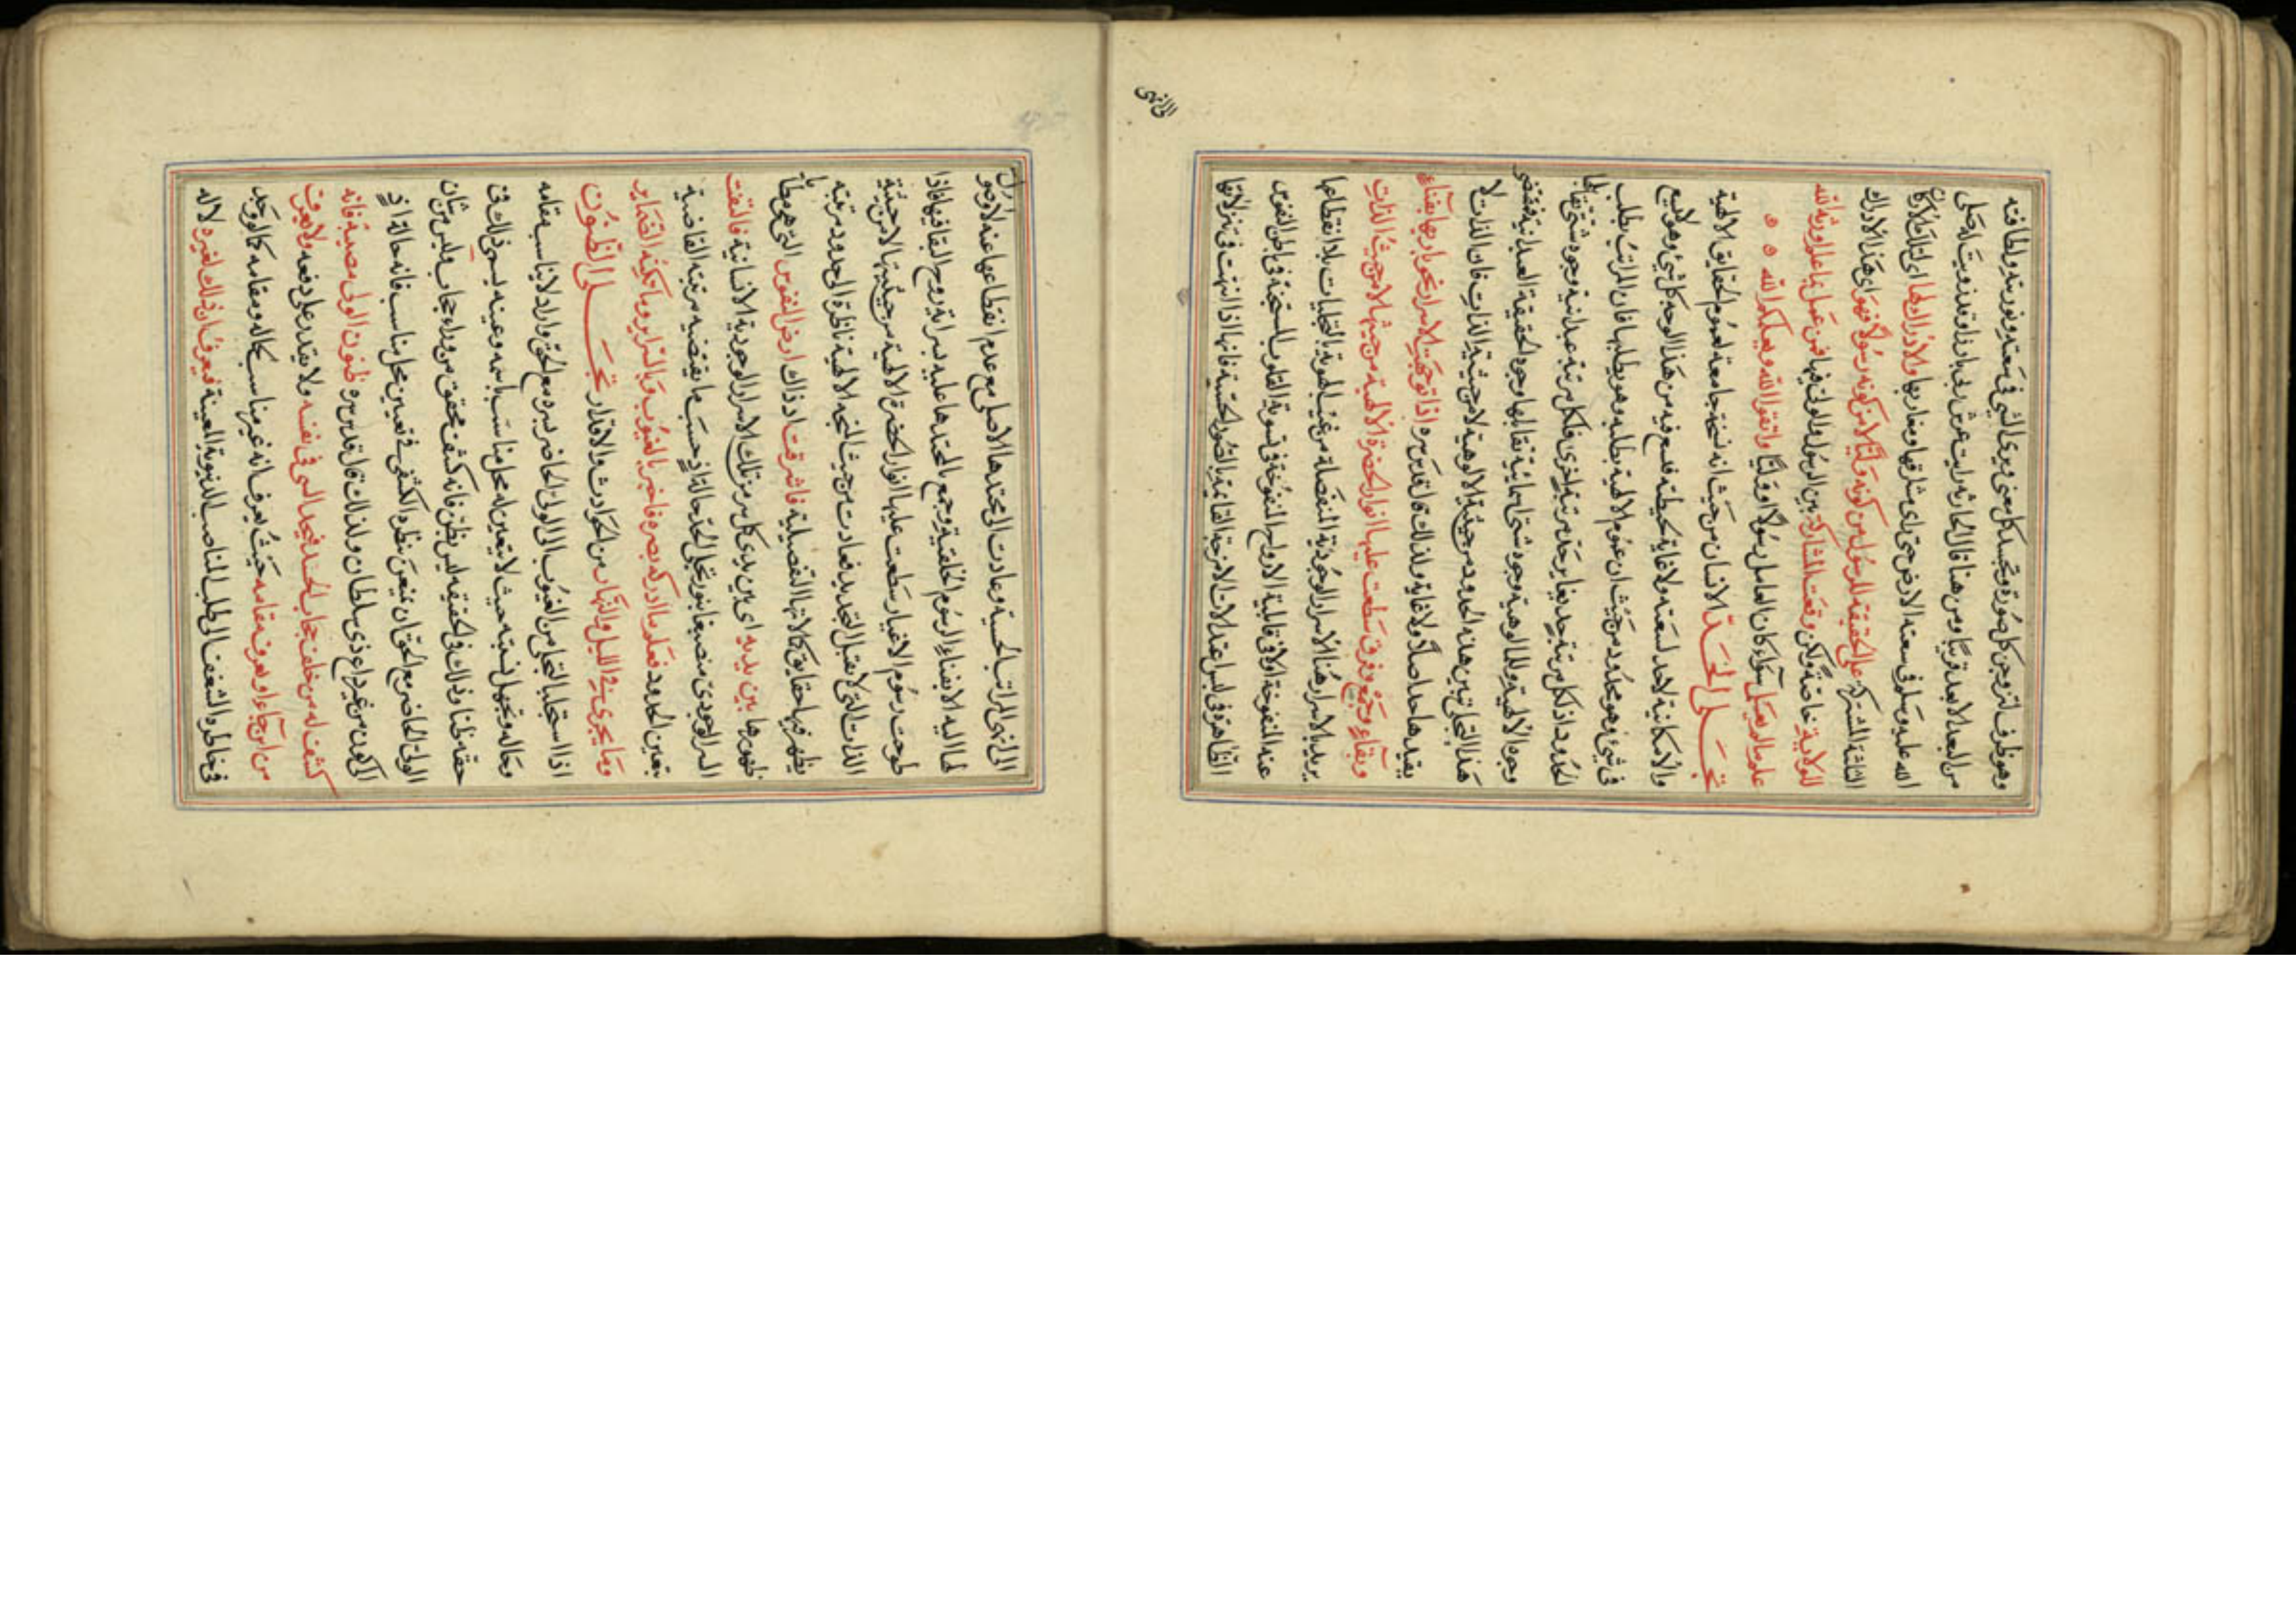 وهو ظرف لتروحن كل صورة وتجسد كل معنى ويرى الشي في سعته ونوريته ولطافته
من البعد الابعد قريبا ومن هنا قال الحارثه رايت عرش ربى بارزا وقد زويت له صلى
الله عليه وسلم في سعته الارض حتى راى مشارقها ومغاربها والادراك لها اى لتلك
الثلثة المشتركة على الحقيقة للرسول من كونه وليا لا من كونه رسولا فهو اى هذا الادراك
للولاية خاصة ولكن وقعت المشاركة بين الرسول والولى فيها فمن عمل بما علم اورثه الله
علم ما لم يعلم سواء كان العامل رسولا او وليا واتقوا الله ويعلمكم الله
تجلى الحد الانسان من حيث انه نسخة جامعة لعموم الحقايق الالهية
والامكانية لاحد لسعته ولا غاية لحيطته فلم فيه من هذا الوجه كل شئ وهو لا يسع
فى شئ وهو محدود من حيث ان عموم الالهية يطلبه وهو يطلبها فان المراتب يطلب
الحدود اذ لكل مرتبة حد يغاير حد مرتبة اخرى فلكل مرتبة عبدانية وجوه شتى تقابلها
وجوه الالهية وللالوهية وجوه شتى احاطية تقابلها وجوه الحقيقة العبدانية فمقتضى
هذا التجلى تبين هذه الحدود من حيثية الالوهية لا من حيثية الذات فان الذات لا
يقيدها حد اصلا ولا غاية ولذلك قال قدس سره اذا توجهت الاسرار نحو بارئها بفناء
وبقاء وجمع وفرق سطعت عليها انوار الحضرة الالهية من حيثها لا من حيث الذات
يريد بالاسرار هنا الاسرار الوجودية المنفصلة من غيب الهوية بالتجليات بلا انقطاعها
عنه المنفوخة اولا فى قابلية الارواح المنفوخة فى تسوية القلوب المستجنة فى باطن النفوس
الظاهرة فى لبس اعتدالات الامزجة القائمة بالصور الحسية فانها اذا انتهت فى تنزلاتها
الى انهى
الى انهى المراتب الحسية وعادت الى محتدها الاصلى مع عدم انقطاعها عنه لا وصول
لها اليه الا بفناء الرسوم الخلقية وجمع بالمحتدها عليه بسراية روح البقا فيها فاذا
طوحت رسوم الاغيار سطعت عليها انوار الحضرة الالهية من حيثيتها لا من حيثية
الذات التى لا تقبل التحديد فعادت من حيث المنحة الالهية ناظرة الى حدود مرتبة
يظهر فيها حقايق كالاتها التفصيلية فاشرقت اذ ذاك ارض النفوس التى هى مطايا
ظهورها بين يديه اى بين يدى كل سر من تلك الاسرار الوجودية الانسانية فالتفت
السر الوجودى منصبغا بنور تجلى الحد حالتئذ حسب ما يقتضيه مرتبته القاضية
بتعين الحدود فعلم ما ادركه بصره فاخبر بالغيوب وبالسراير وما تكنه الضماير
وما يجرى فى الليل والنهار من الحوادث والاقدار تجلى الظنون
اذا استجلب التجلى من الغيوب الى الولى الحاضر سره مع الحق واراد لا يناسب مقامه
وحاله وتجهل نسبته حيث لا يتعين له محل مناسب باسمه وعينه يسمى ذلك فى
حقه ظنا وذلك فى الحقيقة ليس بظن فانه كشف محقق من وراء حجاب وليس من شان
الولى الحاضر مع الحق ان يمعن نظره الكشفى فى تعيين محل مناسب فانه حالة اذٍ
الى كون من غير داع ذى سلطان ولذلك قال قدس سره ظنون الولى مصيبة فانه
كشف له من خلف حجاب الجسد فيجد الشى فى نفسه ولا يقدر على دفعه ولا يعرف
من اين جاء او يعرف مقامه حيث يعرف انه غير مناسب بحاله ومقامه كالوجد
فى خاطره الشغف الى طلب المناصب الدنيوية المعينة فيعرف ان ذلك لغيره لا له